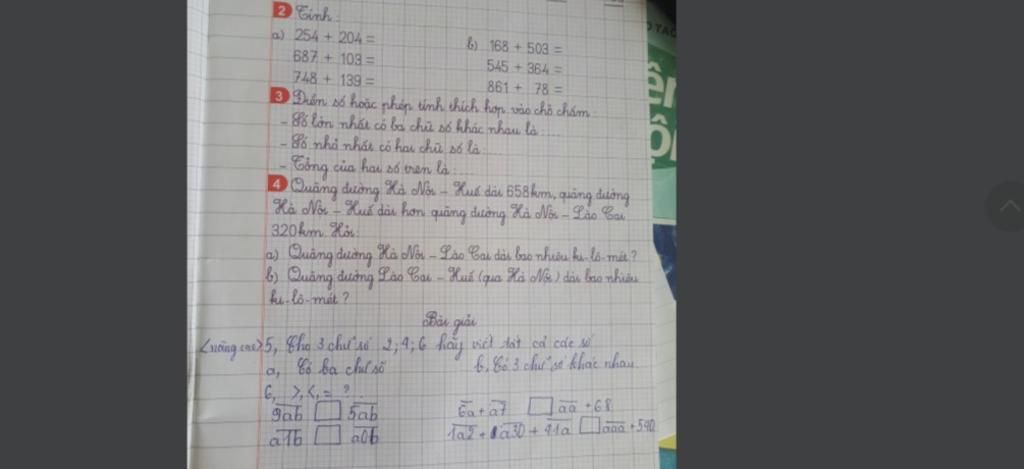 2 Tính:
a) 254 + 204 =
b) 168 + 503 =
687 + 103 =
545 + 364 =
748 + 139 =
861 + 78 =
3 Điền số hoặc phép tính thích hợp vào chỗ chấm:
- Số lớn nhất có ba chữ số khác nhau là: ...
- Số nhỏ nhất có hai chữ số là: ...
- Tổng của hai số trên là: ...
4 Quãng đường Hà Nội - Huế dài 658km, quãng đường
Hà Nội - Huế dài hơn quãng đường Hà Nội - Lào Cai
320km. Hỏi:
a) Quãng đường Hà Nội - Lào Cai dài bao nhiêu ki-lô-mét?
b) Quãng đường Lào Cai - Huế (qua Hà Nội) dài bao nhiêu
ki-lô-mét?
Bài giải
<nâng cao> 5, Cho 3 chữ số 2; 4; 6 hãy viết tất cả các số
a, Có ba chữ số
b, Có 3 chữ số khác nhau.
6, >, <, = ?
9ab □ 5ab
6a + a7 □ aa + 68
a1b □ a0b
1a2 + a30 + 41a □ aaa + 540